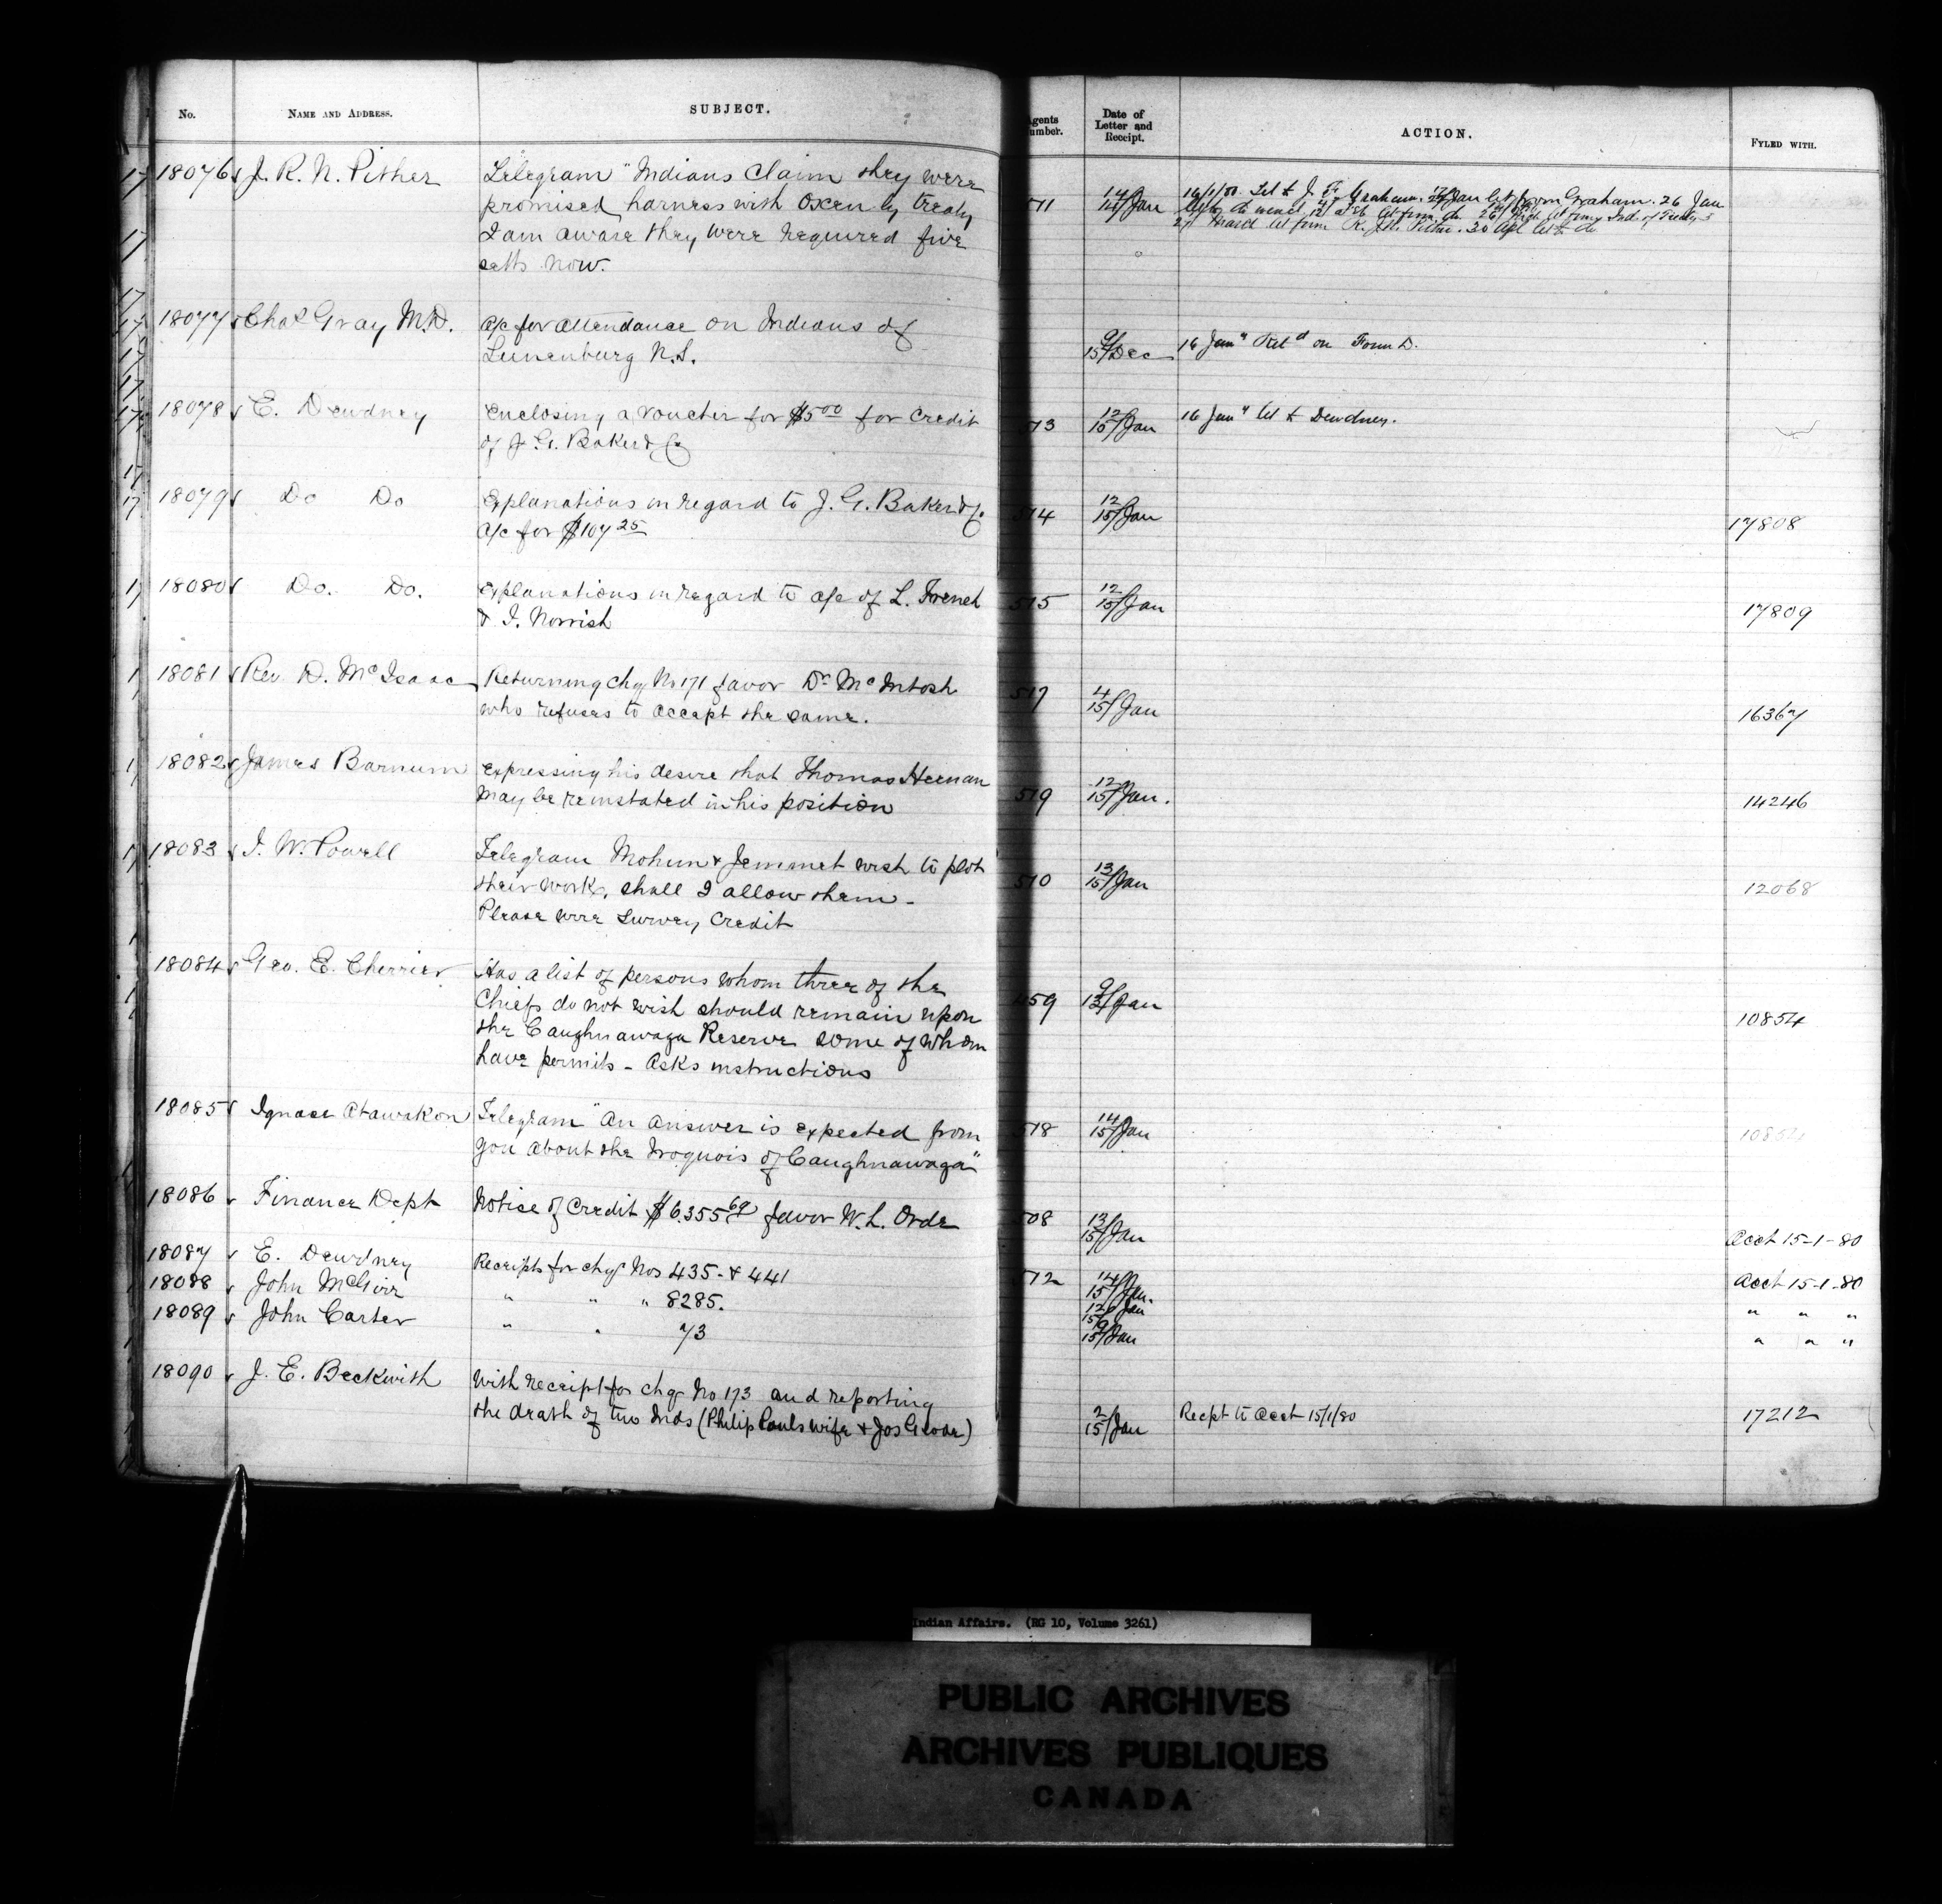 No. NAME AND ADDRESS. SUBJECT. Agents Number. Date of Letter and Receipt. ACTION. FYLED WITH.
18076 J. R. N. Pither Telegram "Indians Claim they were 511 14/14/Jan 16/1/80. Tel to J. F. Graham. 17/Jan let from Graham. 26 Jan
promised harness with Oxen by treaty
27 March let from R. J. N. Pither. 30 Apl let to do
I am aware they were required five
setts now.
18077 Chas Gray M.D. a/c for attendance on Indians of
Lunenburg N.S. 9/15/Dec 16 Jany Retd on Form D.
18078 E. Dewdney Enclosing a voucher for $5.00 for Credit 513 12/15/Jan 16 Jany let to Dewdney.
of J. G. Baker & Co
18079 Do Do Explanations in regard to J. G. Baker & Co. 514 12/15/Jan 17808
a/c for $107.25
18080 Do. Do. Explanations in regard to a/c of L. 515 12/15/Jan 17809
& I. Norrish
18081 Rev D. McIsaac Returning chq No 171 favor Dr McIntosh 517 4/15/Jan 16367
who refuses to accept the same.
18082 James Barnum Expressing his desire that Thomas Heenan 519 12/15/Jan. 14246
may be reinstated in his position
18083 I. W. Powell Telegram Mohun & Jemmet wish to plot 510 13/15/Jan 12068
their work, shall I allow them -
Please wire Survey Credit
18084 Geo. E. Cherrier Has a list of persons whom three of the
Chiefs do not wish should remain upon 459 9/12/Jan 10854
the Caughnawaga Reserve some of whom
have permits - Asks instructions
18085 Ignace Atawakon Telegram "An answer is expected from 518 14/15/Jan 10854
you about the Iroquois of Caughnawaga"
18086 Finance Dept Notice of Credit $6.355.69 favor W. L. Orde 508 13/15/Jan Acct 15-1-80
18087 E. Dewdney Receipts for chqs Nos 435 - & 441 512 14/15/Jan. Acct 15-1-80
18088 John McGirr " " " 8285. 12/15/Jan " " "
18089 John Carter " " 73 9/15/Jan " " "
18090 J. E. Beckwith With receipt for chq No 173 and reporting
the death of two Inds (Philip Pauls wife & Jos Gloar) 2/15/Jan Recpt to Acct 15/1/80 17212
Indian Affairs. (RG 10, Volume 3261)
PUBLIC ARCHIVES
ARCHIVES PUBLIQUES
CANADA